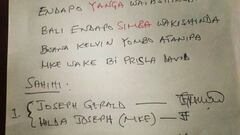 ENDAPO YANGA
BALI ENDAPO SIMBA WAKISHINDA
BWANA KELVIN YOMBO ATANIPA
MKE WAKE BI PRISLA DAVID
SAHIHI:
1. JOSEPH GERALD —
HILDA JOSEPH (MKE) —